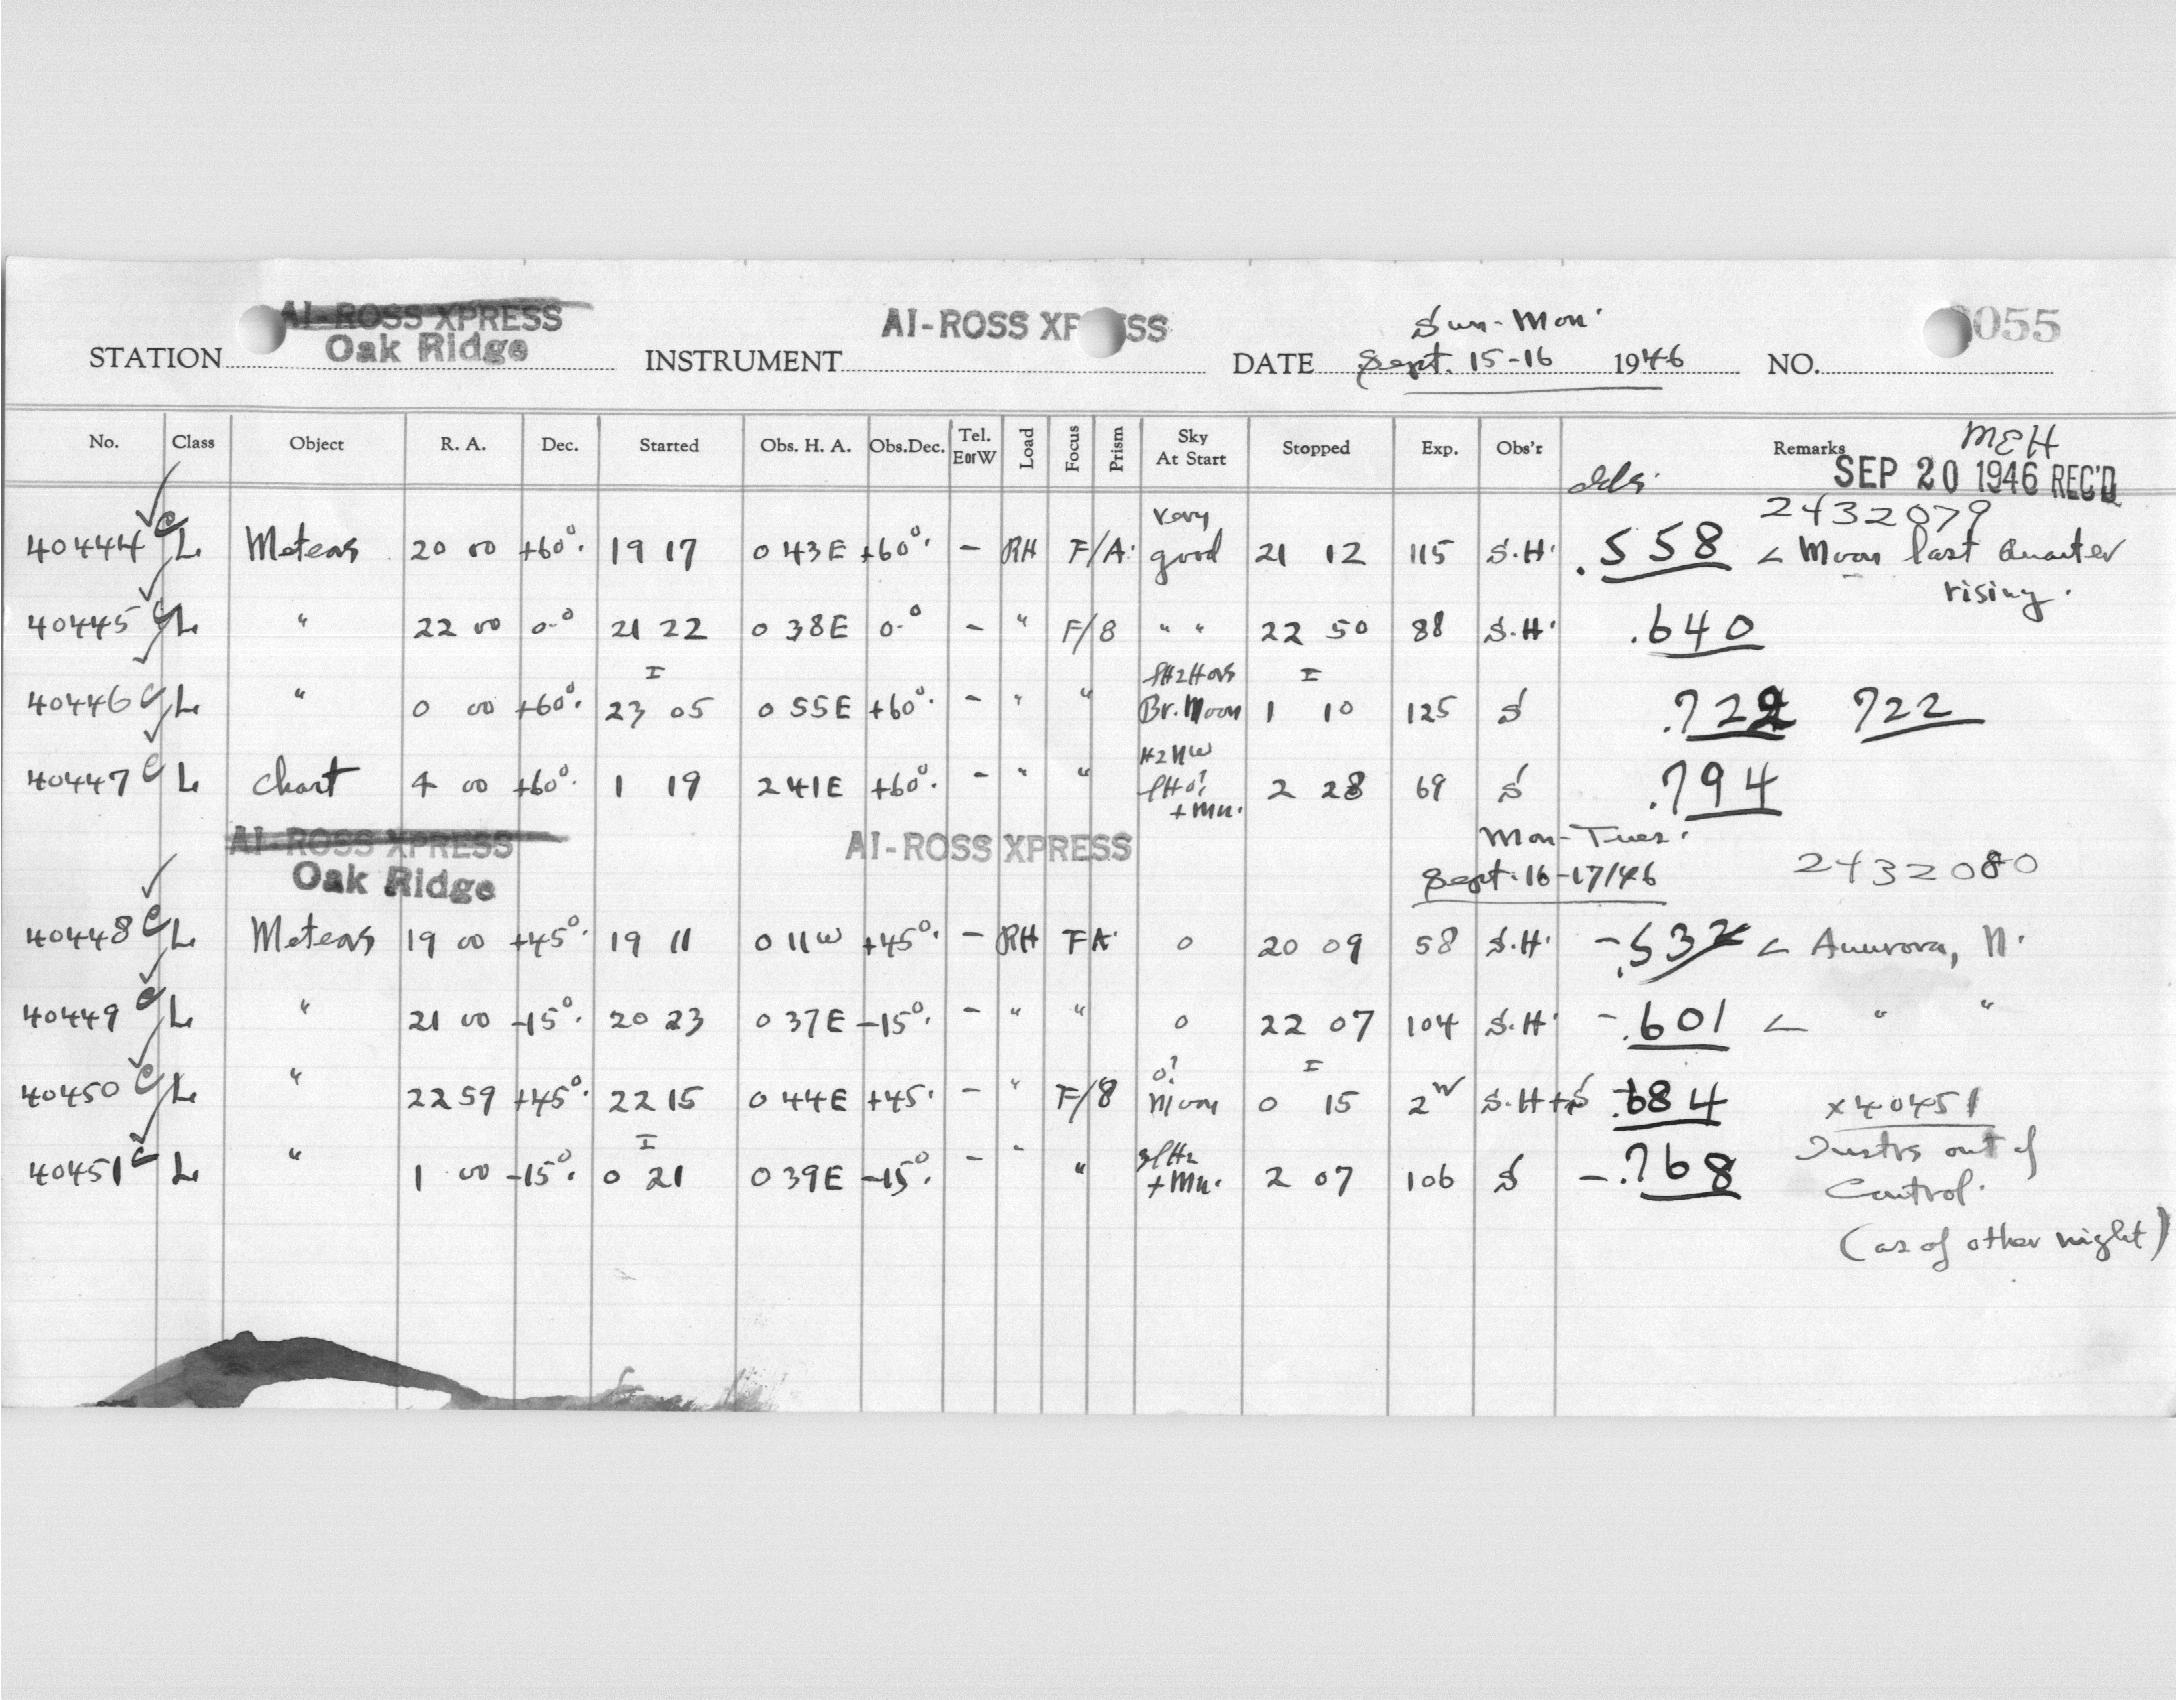 AI-ROSS XPRESS
Oak Ridge
AI-ROSS XPRESS
Sun-Mon.
055
STATION INSTRUMENT DATE Sept. 15-16 1946 NO.
No. Class Object R. A. Dec. Started Obs. H. A. Obs.Dec. Tel. EorW Load Focus Prism Sky At Start Stopped Exp. Obs'r Remarks
MEH
SEP 20 1946 REC'D
2432079
40444 C L Meteors 20 00 +60° 19 17 0 43E +60° - RH F/A. very good 21 12 115 S.H. .558 < Moon last Quarter rising.
40445 C L " 22 00 0° 21 22 0 38E 0° - " F/8 " " 22 50 88 S.H. .640
40446 C L " 0 00 +60° I 23 05 0 55E +60° - " " Br. Moon I 1 10 125 S .722 722
40447 C L Chart 4 00 +60° 1 19 2 41E +60° - " " H2NW + Mn. 2 28 69 S .794
AI-ROSS XPRESS
Oak Ridge
AI-ROSS XPRESS
Mon-Tues.
Sept. 16-17/46
2432080
40448 C L Meteors 19 00 +45° 19 11 0 11W +45° - RH FA. 0 20 09 58 S.H. -.532 < Auurora, N.
40449 C L " 21 00 -15° 20 23 0 37E -15° - " " 0 22 07 104 S.H. -.601 < " "
40450 C L " 22 59 +45° 22 15 0 44E +45. - " F/8 0? Moon I 0 15 S.H+S .684 x40451
40451 C L " 1 00 -15° I 0 21 0 39E -15° - " " + Mn. 2 07 106 S -.768 Instrs out of
Control.
(as of other night)